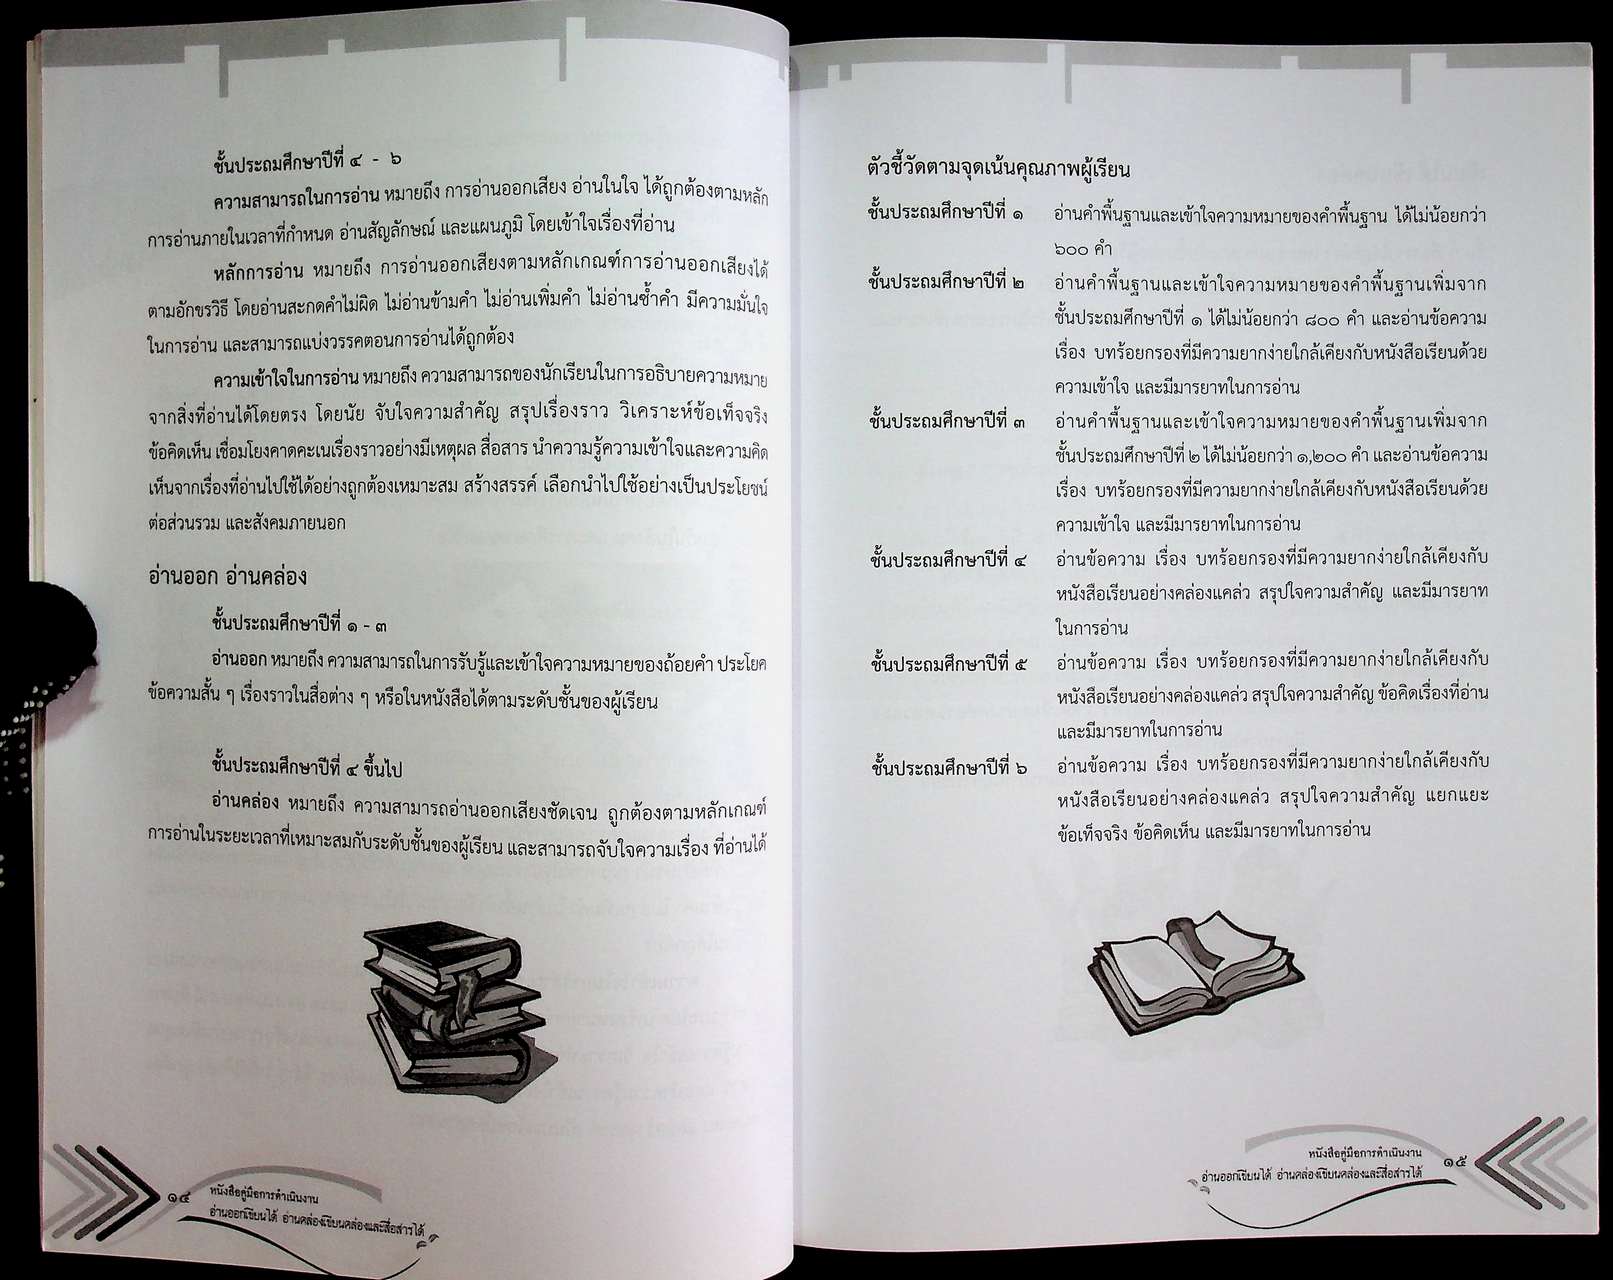 ชั้นประถมศึกษาปีที่ ๔ - ๖
ความสามารถในการอ่าน หมายถึง การอ่านออกเสียง อ่านในใจ ได้ถูกต้องตามหลัก
การอ่านภายในเวลาที่กำหนด อ่านสัญลักษณ์ และแผนภูมิ โดยเข้าใจเรื่องที่อ่าน
หลักการอ่าน หมายถึง การอ่านออกเสียงตามหลักเกณฑ์การอ่านออกเสียงได้
ตามอักขรวิธี โดยอ่านสะกดคำไม่ผิด ไม่อ่านข้ามคำ ไม่อ่านเพิ่มคำ ไม่อ่านซ้ำคำ มีความมั่นใจ
ในการอ่าน และสามารถแบ่งวรรคตอนการอ่านได้ถูกต้อง
ความเข้าใจในการอ่าน หมายถึง ความสามารถของนักเรียนในการอธิบายความหมาย
จากสิ่งที่อ่านได้โดยตรง โดยนัย จับใจความสำคัญ สรุปเรื่องราว วิเคราะห์ข้อเท็จจริง
ข้อคิดเห็น เชื่อมโยงคาดคะเนเรื่องราวอย่างมีเหตุผล สื่อสาร นำความรู้ความเข้าใจและความคิด
เห็นจากเรื่องที่อ่านไปใช้ได้อย่างถูกต้องเหมาะสม สร้างสรรค์ เลือกนำไปใช้อย่างเป็นประโยชน์
ต่อส่วนรวม และสังคมภายนอก
อ่านออก อ่านคล่อง
ชั้นประถมศึกษาปีที่ ๑ - ๓
อ่านออก หมายถึง ความสามารถในการรับรู้และเข้าใจความหมายของถ้อยคำ ประโยค
ข้อความสั้น ๆ เรื่องราวในสื่อต่าง ๆ หรือในหนังสือได้ตามระดับชั้นของผู้เรียน
ชั้นประถมศึกษาปีที่ ๔ ขึ้นไป
อ่านคล่อง หมายถึง ความสามารถอ่านออกเสียงชัดเจน ถูกต้องตามหลักเกณฑ์
การอ่านในระยะเวลาที่เหมาะสมกับระดับชั้นของผู้เรียน และสามารถจับใจความเรื่อง ที่อ่านได้
๑๔ หนังสือคู่มือการดำเนินงาน
อ่านออกเขียนได้ อ่านคล่องเขียนคล่องและสื่อสารได้
ตัวชี้วัดตามจุดเน้นคุณภาพผู้เรียน
ชั้นประถมศึกษาปีที่ ๑ อ่านคำพื้นฐานและเข้าใจความหมายของคำพื้นฐาน ได้ไม่น้อยกว่า
๖๐๐ คำ
ชั้นประถมศึกษาปีที่ ๒ อ่านคำพื้นฐานและเข้าใจความหมายของคำพื้นฐานเพิ่มจาก
ชั้นประถมศึกษาปีที่ ๑ ได้ไม่น้อยกว่า ๘๐๐ คำ และอ่านข้อความ
เรื่อง บทร้อยกรองที่มีความยากง่ายใกล้เคียงกับหนังสือเรียนด้วย
ความเข้าใจ และมีมารยาทในการอ่าน
ชั้นประถมศึกษาปีที่ ๓ อ่านคำพื้นฐานและเข้าใจความหมายของคำพื้นฐานเพิ่มจาก
ชั้นประถมศึกษาปีที่ ๒ ได้ไม่น้อยกว่า ๑,๒๐๐ คำ และอ่านข้อความ
เรื่อง บทร้อยกรองที่มีความยากง่ายใกล้เคียงกับหนังสือเรียนด้วย
ความเข้าใจ และมีมารยาทในการอ่าน
ชั้นประถมศึกษาปีที่ ๔ อ่านข้อความ เรื่อง บทร้อยกรองที่มีความยากง่ายใกล้เคียงกับ
หนังสือเรียนอย่างคล่องแคล่ว สรุปใจความสำคัญ และมีมารยาท
ในการอ่าน
ชั้นประถมศึกษาปีที่ ๕ อ่านข้อความ เรื่อง บทร้อยกรองที่มีความยากง่ายใกล้เคียงกับ
หนังสือเรียนอย่างคล่องแคล่ว สรุปใจความสำคัญ ข้อคิดเรื่องที่อ่าน
และมีมารยาทในการอ่าน
ชั้นประถมศึกษาปีที่ ๖ อ่านข้อความ เรื่อง บทร้อยกรองที่มีความยากง่ายใกล้เคียงกับ
หนังสือเรียนอย่างคล่องแคล่ว สรุปใจความสำคัญ แยกแยะ
ข้อเท็จจริง ข้อคิดเห็น และมีมารยาทในการอ่าน
หนังสือคู่มือการดำเนินงาน ๑๕
อ่านออกเขียนได้ อ่านคล่องเขียนคล่องและสื่อสารได้